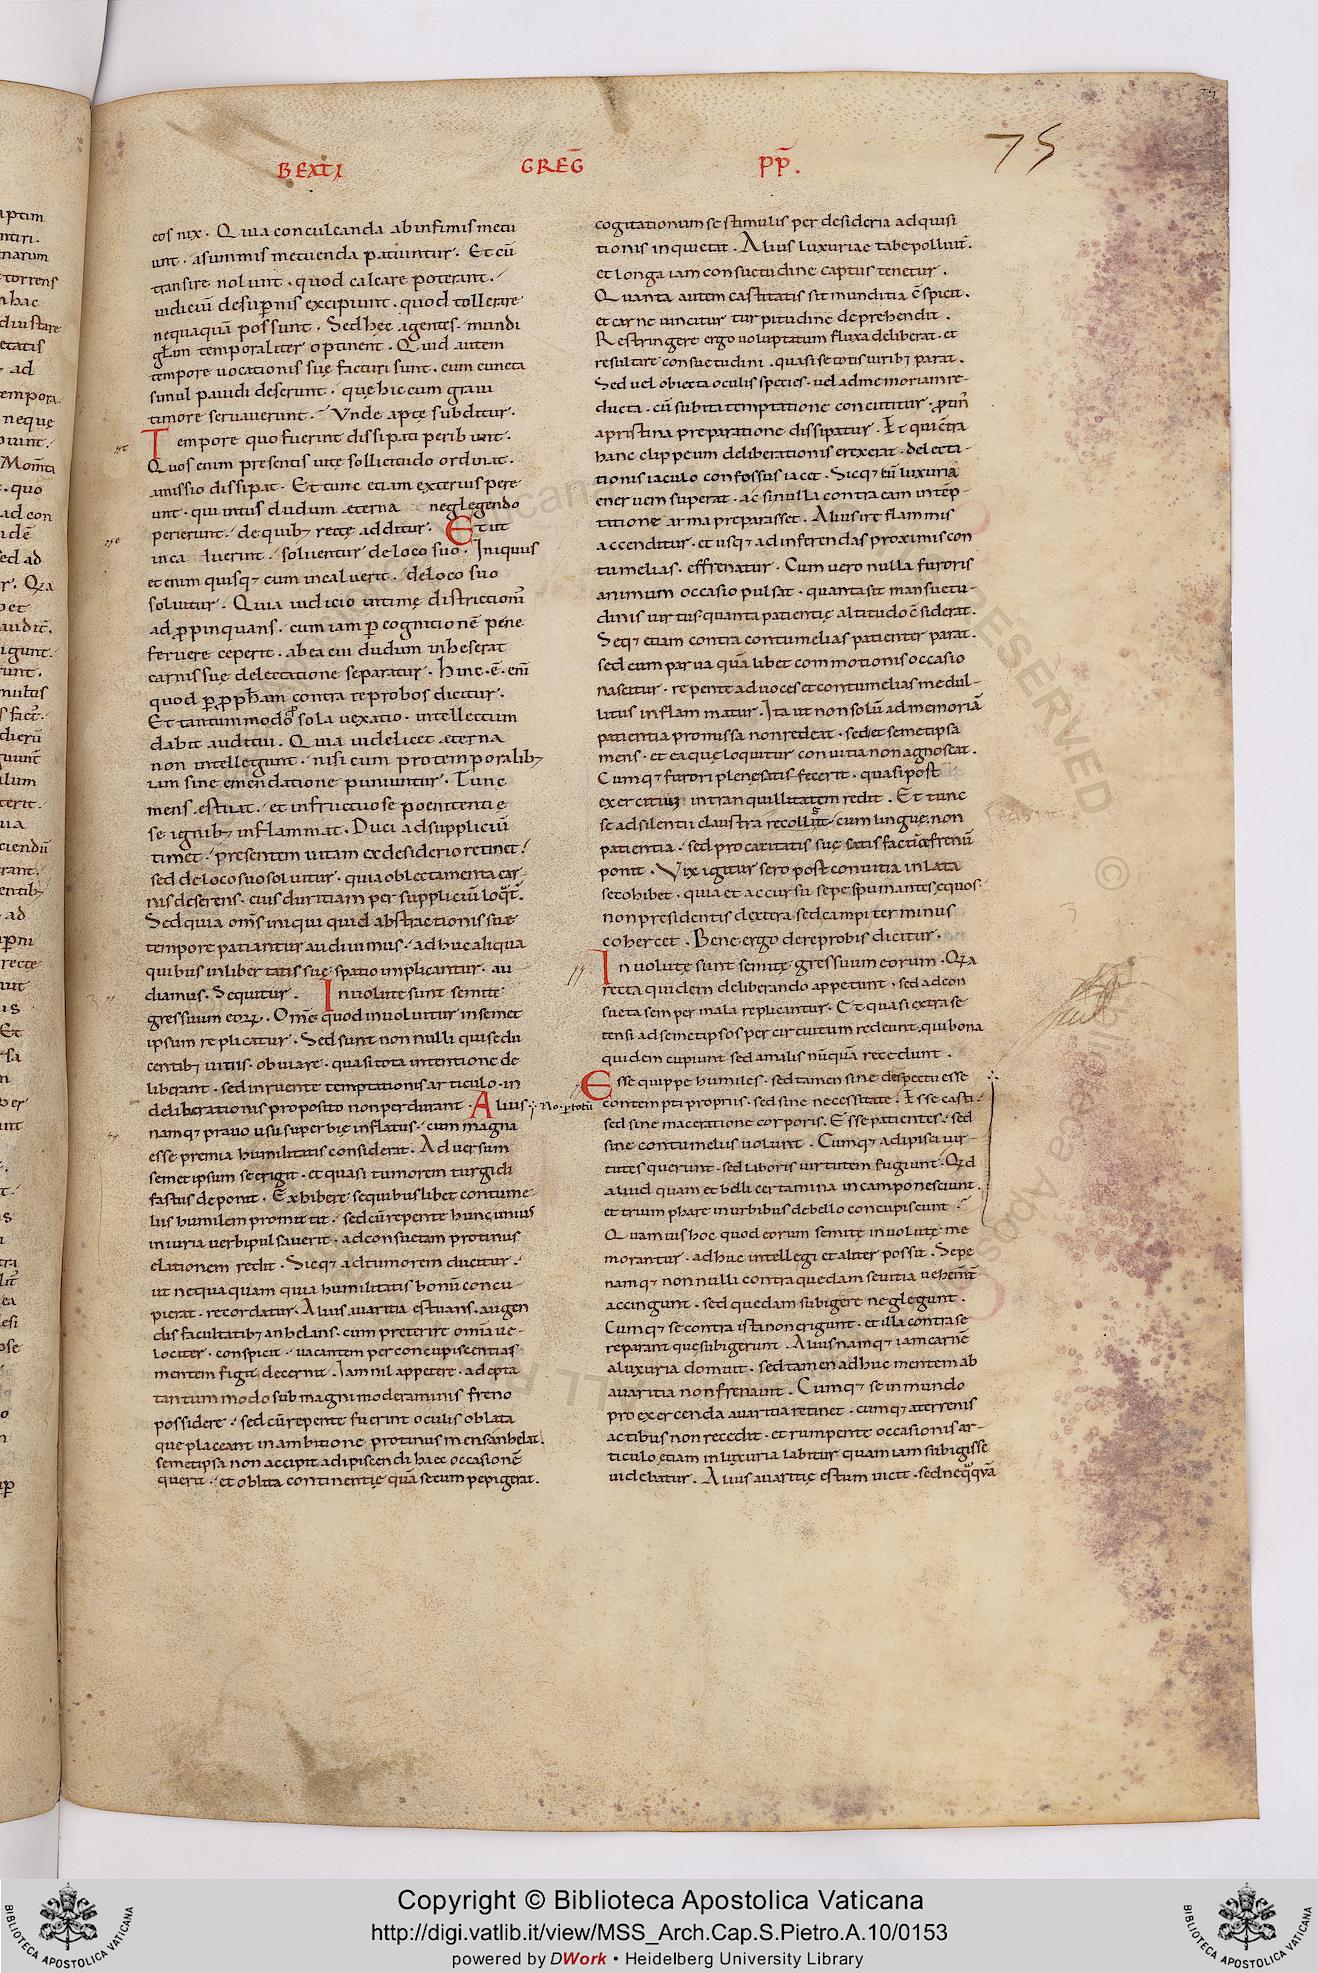 BEATI GREḠ PP̄.
75
eos nix. Quia conculcanda ab infimis metu
unt. a summis metuenda patiuntur. Et cū
transire nolunt. quod calcare poterant.
iudiciū desupernis excipiunt. quod tollerare
nequaquā possunt. Sed hęc agentes. mundi
gl̄am temporaliter optinent. Quid autem
tempore uocationis suę facturi sunt. cum cuncta
simul pauidi deserunt. quę hic cum graui
timore seruauerunt. Vnde aptę subditur.
Tempore quo fuerint dissipati peribunt.
Quos enim presentis uitę sollicitudo ordinat.
amissio dissipat. Et tunc etiam exterius pere
unt. qui intus dudum ęterna neglegendo
perierunt. de quib; rectę additur. Et ut
incaluerint. soluentur de loco suo. Iniquus
etenim quisq; cum incaluerit. de loco suo
soluitur. Quia iudicio intimę districtionis
ad ꝓpinquans. cum iam ꝑ cognitionē penę
feruere ceperit. ab ea cui dudum inheserat
carnis suę delectatione separatur. Hinc. ē. eni
quod ꝑ ꝓph̄am contra reprobos dicitur.
Et tantummodo sola uexatio. intellectum
dabit auditui. Quia uidelicet ęterna
non intellegunt. nisi cum pro temporalib;
iam sine emendatione puniuntur. Tunc
mens ęstuat. et infructuose poenitentię
se ignib; inflammat. Duci ad suppliciū
timet. presentem uitam ex desiderio retinet.
sed de loco suo soluitur. quia oblectamenta car-
nis deserens. eius duritiam per suppliciū loq̄t̄.
Sed quia om̄s iniqui quid abstractionis suę
tempore patiantur audiuimus. adhuc aliqua
quibus in libertatis suę spatio implicantur. au
diamus. Sequitur. Inuolute sunt semite
gressuum eorꝝ. Omē quod inuoluitur in semet
ipsum replicatur. Sed sunt nonnulli qui sedu
centib; uitiis. obuiare. quasi tota intentione de
liberant. sed inruente temptationis articulo. in
deliberationis proposito non perdurant. Alius
namq; prauo usu superbię inflatus. cum magna
esse premia humilitatis considerat. Aduersum
semetipsum se erigit. et quasi tumorem turgidi
fastus deponit. Exhibere se quibuslibet contume-
liis humilem promittit. sed cū repente hunc unius
iniuria uerbi pulsauerit. ad consuetam protinus
elationem redit. Sicq; ad tumorem ducitur.
ut nequaquam quia humilitatis bonū concu-
pierat. recordatur. Alius auaritia ęstuans. augen
dis facultatib; anhelans. cum preterire omīa ue-
lociter. conspicit. uacantem per concupiscentias
mentem figit. decernit. Iam nil appetere. adepta
tantummodo sub magni moderaminis freno
possidere. sed cū repente fuerint oculis oblata
que placeant in ambitione protinus mens anhelat.
semetipsa non accipit adipiscendi haec occasionē
querit. et oblita continentię quā secum pepigerat.
cogitationum se stimulis per desideria adquisi
tionis inquietat. Alius luxuriae tabe polluit̄.
et longa iam consuetudine captus tenetur.
Quanta autem castitatis sit munditia c̄spicit.
et carne uincitur turpitudine deprehendit.
Restringere ergo uoluptatum fluxa deliberat. et
resultare consuetudini. quasi se totis uirib; parat.
Sed uel obiecta oculis species. uel ad memoriam re-
ducta. cū subita temptatione concutitur. ꝓtin̄
a pristina preparatione dissipatur. Et qui c̄tra
hanc clippeum deliberationis erexerat. delecta-
tionis iaculo confossus iacet. Sicq; eū luxuriā
eneruem superat. ac si nulla contra eam intēp-
titione arma preparasset. Alius irę flammis
accenditur. et usq; ad inferendas proximis con
tumelias. effrenatur. Cum uero nulla furoris
animum occasio pulsat. quanta sit mansuetu-
dinis uirtus. quanta patientię altitudo c̄siderat.
Seq; etiam contra contumelias patienter parat.
sed cum parua quālibet commotionis occasio
nascitur. repente ad uoces et contumelias medul-
litus inflammatur. Ita ut non solū ad memoriā
patientia promissa non redeat. sed et semetipsa
mens. et ea que loquitur conuitia non agnoscat.
Cumq; furori plene satisfecerit. quasi post
exercitium in tranquillitatem redit. Et tunc
se ad silentii claustra recolligit. cum linguę. non
patientia. sed procacitatis suę satisfactio frenū
ponit. Vix igitur sero post conuitia inlata
se cohibet. quia et a cursu sepe spumantes equos.
non presidentis dextera sed campi terminus
cohercet. Bene ergo de reprobis dicitur.
Inuolutę sunt semitę gressuum eorum. Qꝛa
recta quidem deliberando appetunt. sed ad con
sueta semper mala replicantur. Et quasi extra se
tensi ad semetipsos per circuitum redeunt. qui bona
quidem cupiunt sed a malis nūquā recedunt.
Esse quippe humiles. sed tamen sine despectu esse
contempti propriis. sed sine necessitate. Esse casti.
sed sine maceratione corporis. Esse patientes. sed
sine contumeliis uolunt. Cumq; adipisci uir-
tutes querunt. sed laboris uirtutem fugiunt. Qꝛd
aliud quam et belli certamina in campo nesciunt.
et triumphare in urbibus de bello concupiscunt.
Quamuis hoc quod eorum semitę inuolutę me
morantur. adhuc intellegi et aliter possit. Sepe
namq; nonnulli contra quedam seuitia uehem̄t̄
accingunt. sed quedam subigere neglegunt.
Cumq; se contra ista non erigunt. et illa contra se
reparant quę subigerunt. Alius namq; iam carnē
a luxuria domuit. sed tamen adhuc mentem ab
auaritia non frenauit. Cumq; se in mundo
pro exercenda auaritia retinet. cumq; a terrenis
actibus non recedit. et rumpente occasionis ar-
ticulo ętiam in luxuria labitur quam iam subigisse
uidebatur. Alius auaritię estum uicit. sed neq̄quā
Copyright © Biblioteca Apostolica Vaticana
http://digi.vatlib.it/view/MSS_Arch.Cap.S.Pietro.A.10/0153
powered by DWork • Heidelberg University Library